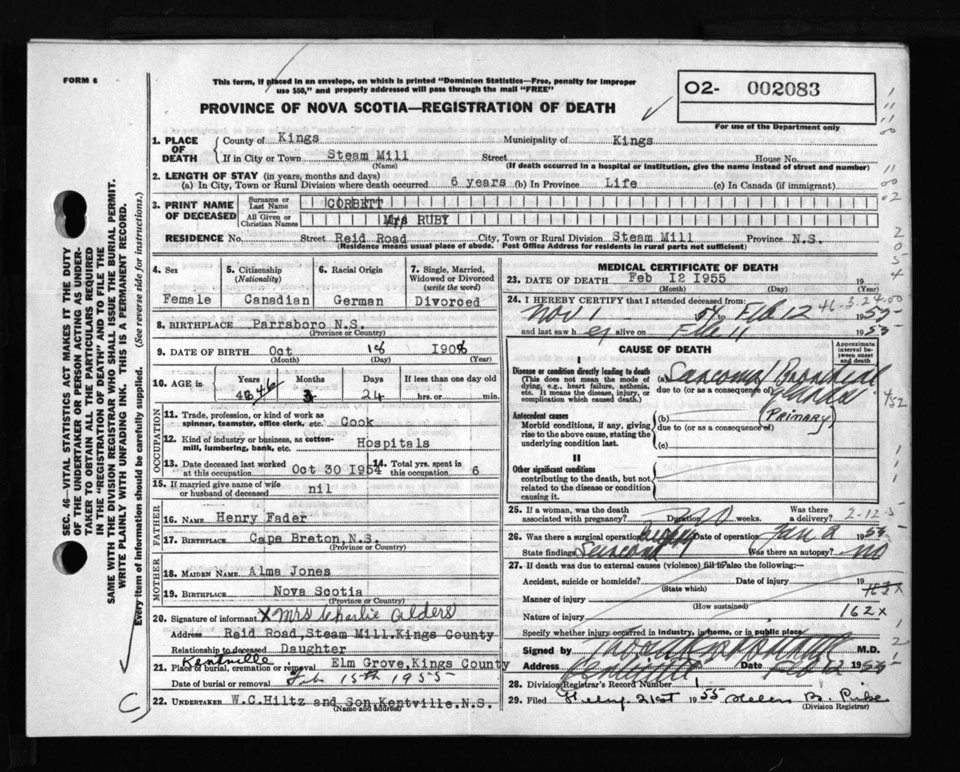 FORM 6
This form, if placed in an envelope, on which is printed "Dominion Statistics—Free, penalty for improper
use $50," and properly addressed will pass through the mail "FREE"
PROVINCE OF NOVA SCOTIA—REGISTRATION OF DEATH
O2- 002083
For use of the Department only
1. PLACE OF DEATH
County of Kings Municipality of Kings
If in City or Town Steam Mill Street House No.
(Name) (If death occurred in a hospital or institution, give the name instead of street and number)
2. LENGTH OF STAY (in years, months and days)
(a) In City, Town or Rural Division where death occurred 6 years (b) In Province Life (c) In Canada (if immigrant)
3. PRINT NAME OF DECEASED
Surname or Last Name CORBETT
All Given or Christian Names Mrs RUBY
RESIDENCE No. Street Reid Road City, Town or Rural Division Steam Mill Province N.S.
(Residence means usual place of abode. Post Office Address for residents in rural parts not sufficient)
4. Sex Female
5. Citizenship (Nationality) Canadian
6. Racial Origin German
7. Single, Married, Widowed or Divorced (write the word) Divorced
8. BIRTHPLACE Parrsboro N.S.
(Province or Country)
9. DATE OF BIRTH Oct 18 1908
(Month) (Day) (Year)
10. AGE in Years 46 Months 3 Days 24 If less than one day old hrs. or min.
OCCUPATION
11. Trade, profession, or kind of work as spinner, teamster, office clerk, etc. Cook
12. Kind of industry or business, as cotton-mill, lumbering, bank, etc. Hospitals
13. Date deceased last worked at this occupation Oct 30 1954
14. Total yrs. spent in this occupation 6
15. If married give name of wife or husband of deceased nil
FATHER
16. NAME Henry Fader
17. BIRTHPLACE Cape Breton, N.S.
(Province or Country)
MOTHER
18. MAIDEN NAME Alma Jones
19. BIRTHPLACE Nova Scotia
(Province or Country)
20. Signature of informant X Mrs Charlie Alders
Address Reid Road, Steam Mill. Kings County
Relationship to deceased Daughter
21. Place of burial, cremation or removal Kentville Elm Grove, Kings County
Date of burial or removal Feb 15th 1955
22. UNDERTAKER W.C.Hiltz and Son, Kentville, N.S.
(Name and address)
MEDICAL CERTIFICATE OF DEATH
23. DATE OF DEATH Feb 12 1955 19
(Month) (Day) (Year)
24. I HEREBY CERTIFY that I attended deceased from:
Nov 1 to Feb 12 1955
and last saw her alive on Feb 11 1955
CAUSE OF DEATH
Approximate interval between onset and death
I
Disease or condition directly leading to death
(This does not mean the mode of dying, e.g., heart failure, asthenia, etc. It means the disease, injury, or complication which caused death.)
(a) Sarcoma Bronchial glands
due to (or as a consequence of)
(Primary)
Antecedent causes
Morbid conditions, if any, giving rise to the above cause, stating the underlying condition last.
(b)
due to (or as a consequence of)
(c)
II
Other significant conditions
contributing to the death, but not related to the disease or condition causing it.
25. If a woman, was the death associated with pregnancy? no Duration weeks. Was there a delivery?
2-12-5
26. Was there a surgical operation Biopsy Date of operation Jan 2
State findings Sarcoma Was there an autopsy? no
27. If death was due to external causes (violence) fill in also the following:—
Accident, suicide or homicide? Date of injury 19
(State which)
Manner of injury
(How sustained)
Nature of injury 162x
Specify whether injury occurred in industry, in home, or in public place
Signed by M.D.
Address Kentville Date Feb 12 1955
28. Division Registrar's Record Number 1
29. Filed Feby. 21st 1955 Helen B.
(Division Registrar)
SEC. 46—VITAL STATISTICS ACT MAKES IT THE DUTY
OF THE UNDERTAKER OR PERSON ACTING AS UNDER-
TAKER TO OBTAIN ALL THE PARTICULARS REQUIRED
IN THE "REGISTRATION OF DEATH" AND TO FILE THE
SAME WITH THE DIVISION REGISTRAR WHO SHALL ISSUE THE BURIAL PERMIT.
WRITE PLAINLY WITH UNFADING INK. THIS IS A PERMANENT RECORD.
Every item of information should be carefully supplied. (See reverse side for instructions.)